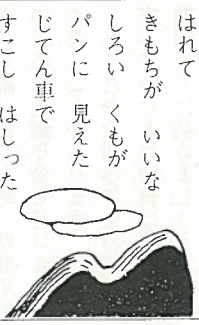 はれて
きもちが　いいな
しろい　くもが
パンに　見えた
じてん車で
すこし　はしった